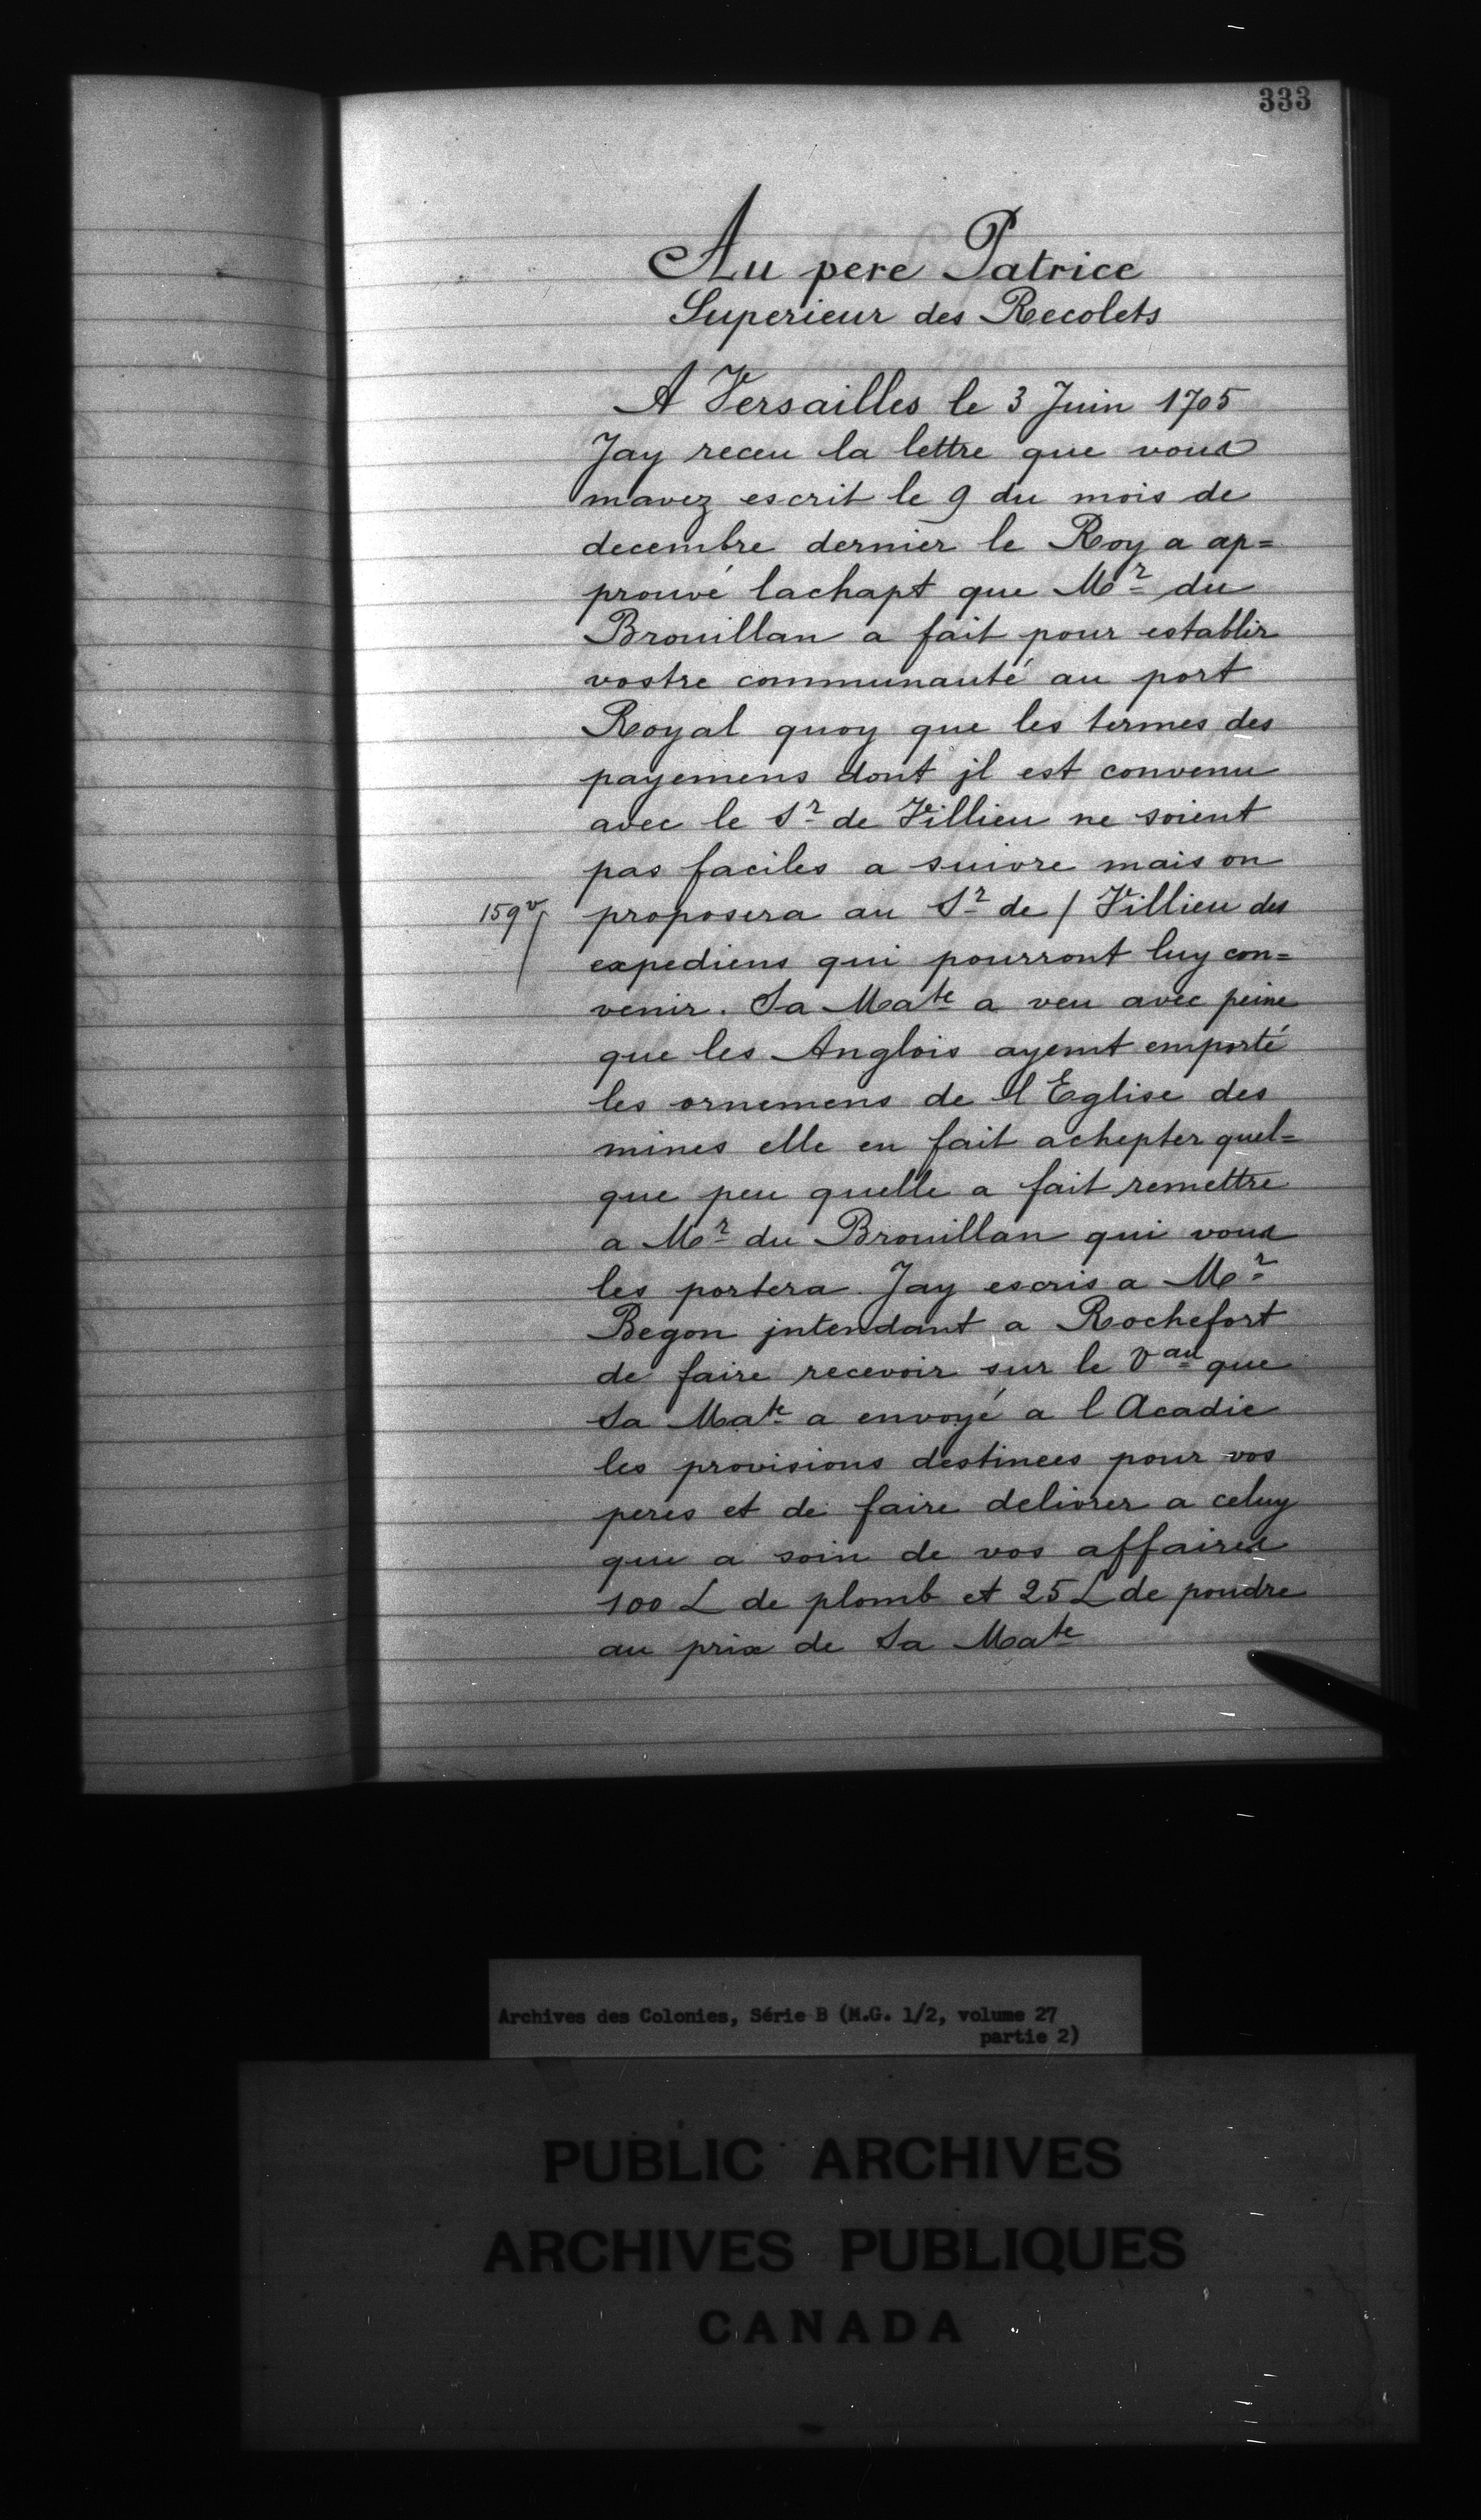 333
Au pere Patrice
Superieur des Recolets
A Versailles le 3 Juin 1705
Jay receu la lettre que vous
mavez escrit le 9 du mois de
decembre dernier le Roy a ap=
prouvé lachapt que Mr du
Brouillan a fait pour establir
vostre communauté au port
Royal quoy que les termes des
payemens dont jl est convenu
avec le Sr de Villieu ne soient
pas faciles a suivre mais on
159v/ proposera au Sr de / Villieu des
expediens qui pourront luy con=
venir. Sa Mate a veu avec peine
que les Anglois ayent emporté
les ornemens de l Eglise des
mines elle en fait achepter quel=
que peu quelle a fait remettre
a Mr du Brouillan qui vous
les portera. Jay escris a Mr
Begon jntendant a Rochefort
de faire recevoir sur le Vau que
Sa Mate a envoyé a l Acadie
les provisions destinees pour vos
peres et de faire delivrer a celuy
que a soin de vos affaires
100 L de plomb et 25 L de poudre
au prix de Sa Mate
Archives des Colonies, Série B (M.G. 1/2, volume 27
partie 2)
PUBLIC ARCHIVES
ARCHIVES PUBLIQUES
CANADA